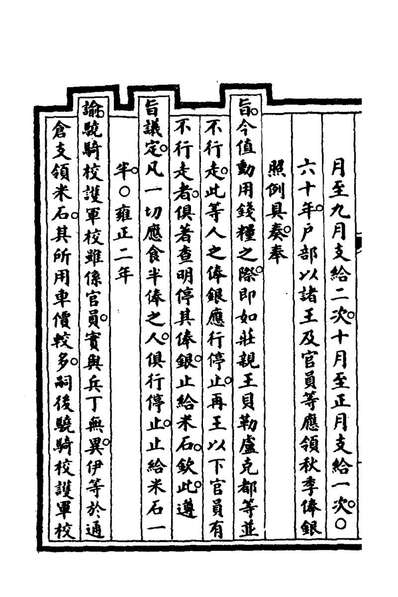 月至九月支給二次。十月至正月支給一次。○
六十年。戶部以諸王及官員等應領秋季俸銀
照例具奏。奉
旨。今值動用錢糧之際。即如莊親王貝勒盧克都等並
不行走。此等人之俸銀應行停止。再王以下官員有
不行走者。俱著查明停其俸銀。止給米石。欽此。遵
旨議定。凡一切應食半俸之人。俱行停止。止給米石一
半。○雍正二年
諭。驍騎校護軍校雖係官員。實與兵丁無異。伊等於通
倉支領米石。其所用車價較多。嗣後驍騎校護軍校